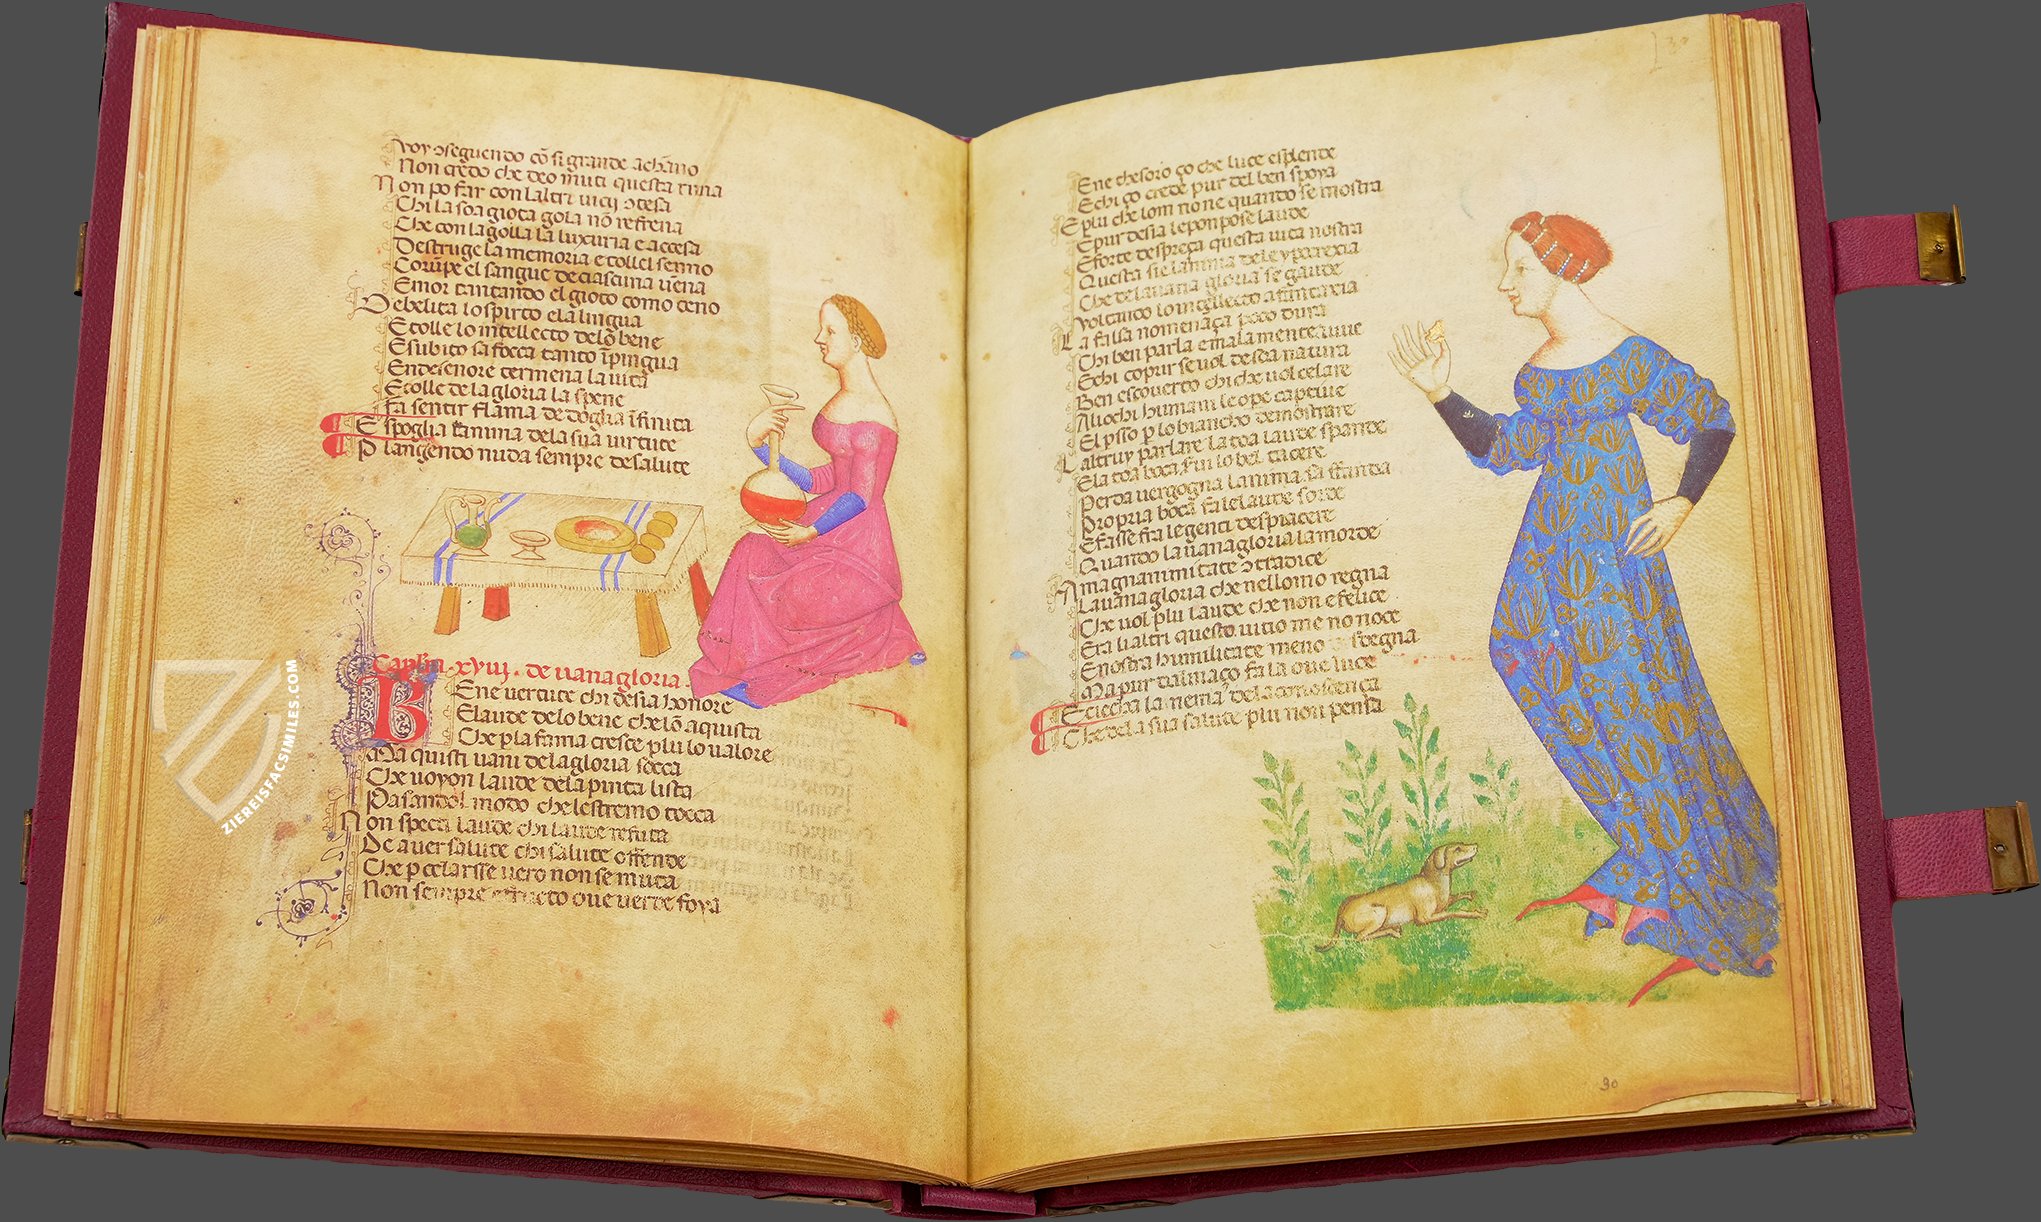 Voy ɔseguendo cō si grande achāno
Non credo che deo muti questa runa
Non po far con laltri vicij ɔtesa
Chi la soa giota gola nō refrena
Che con la golla la luxuria e accesa
Destruge la memoria e tollel senno
Corūpe el sangue de ciascuna vēna
E mor tantando el gioto como ceno
Debelita lo spirto e la lingua
E tolle lo intellecto de lo bene
E subito sa focca tanto īpingua
En desenore termena la vita
E tolle de la gloria la spene
Fa sentir flāma de doglia īfinita
E spoglia lanima dela sua virtute
Plangendo nuda sempre de salute
xviij. de vana gloria.
Bene vertute chi desia honore
E laude de lo bene che lō aquista
Che p la fama cresce plu lo valore
Ma quisti vani dela gloria socca
Che voyon laude dela pinta lista
Pasando l modo che lestremo tocca
Non specti laude chi laude refuta
De aver salute chi salute offende
Che p celarsse vero non se muta
Non sempre e fructo oue verde foya
30
E ne thesoro ço che luce esplende
E chi ço crede pur del ben spoya
E plu che lom non e quando se mostra
E pur desia le ponpose laude
E forte despreça questa vita nostra
Questa sie lanima de le yparexia
Che de la vana gloria se gaude
Voltando lo intellecto a fantaxia
La falsa nomenāça poco dura
Chi ben parla e malamente viue
E chi copur se vol de soa natura
Ben escouerto chi che vol celare
Aliochi humani le ope captiue
El psto p lo biancho demostrare
Laltruy parlare la toa laude spande
E la toa boca fui lo bel tacere
Perda vergogna lanima
Propria boca fa le laude sorde
E fasse fra le genti despiacere
Quando la vana gloria la morde
A magnanimitate ɔtradice
La vana gloria che nellomo regna
Che vol plu laude che non e felice
Era li altri questo vitio me no noce
E nostra humilitate meno sdegna
Ma pur dalmaço fa la oue luce
E ciecha la nema dela conoscença
Che dela sua salute plu non pensa
30
ZIEREISFACSIMILES.COM